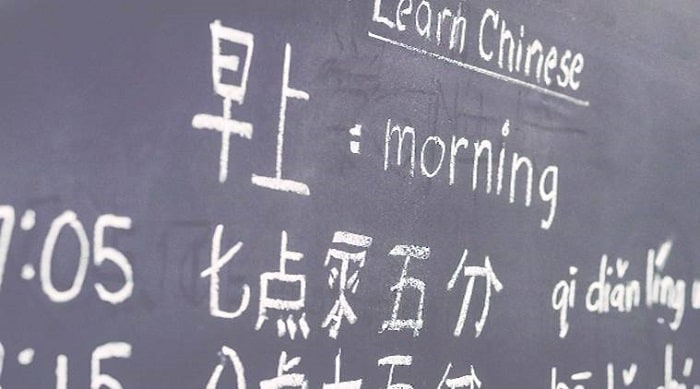 Learn Chinese
早上 : morning
7:05 七点零五分 qi diǎn líng
:15 八点十五分